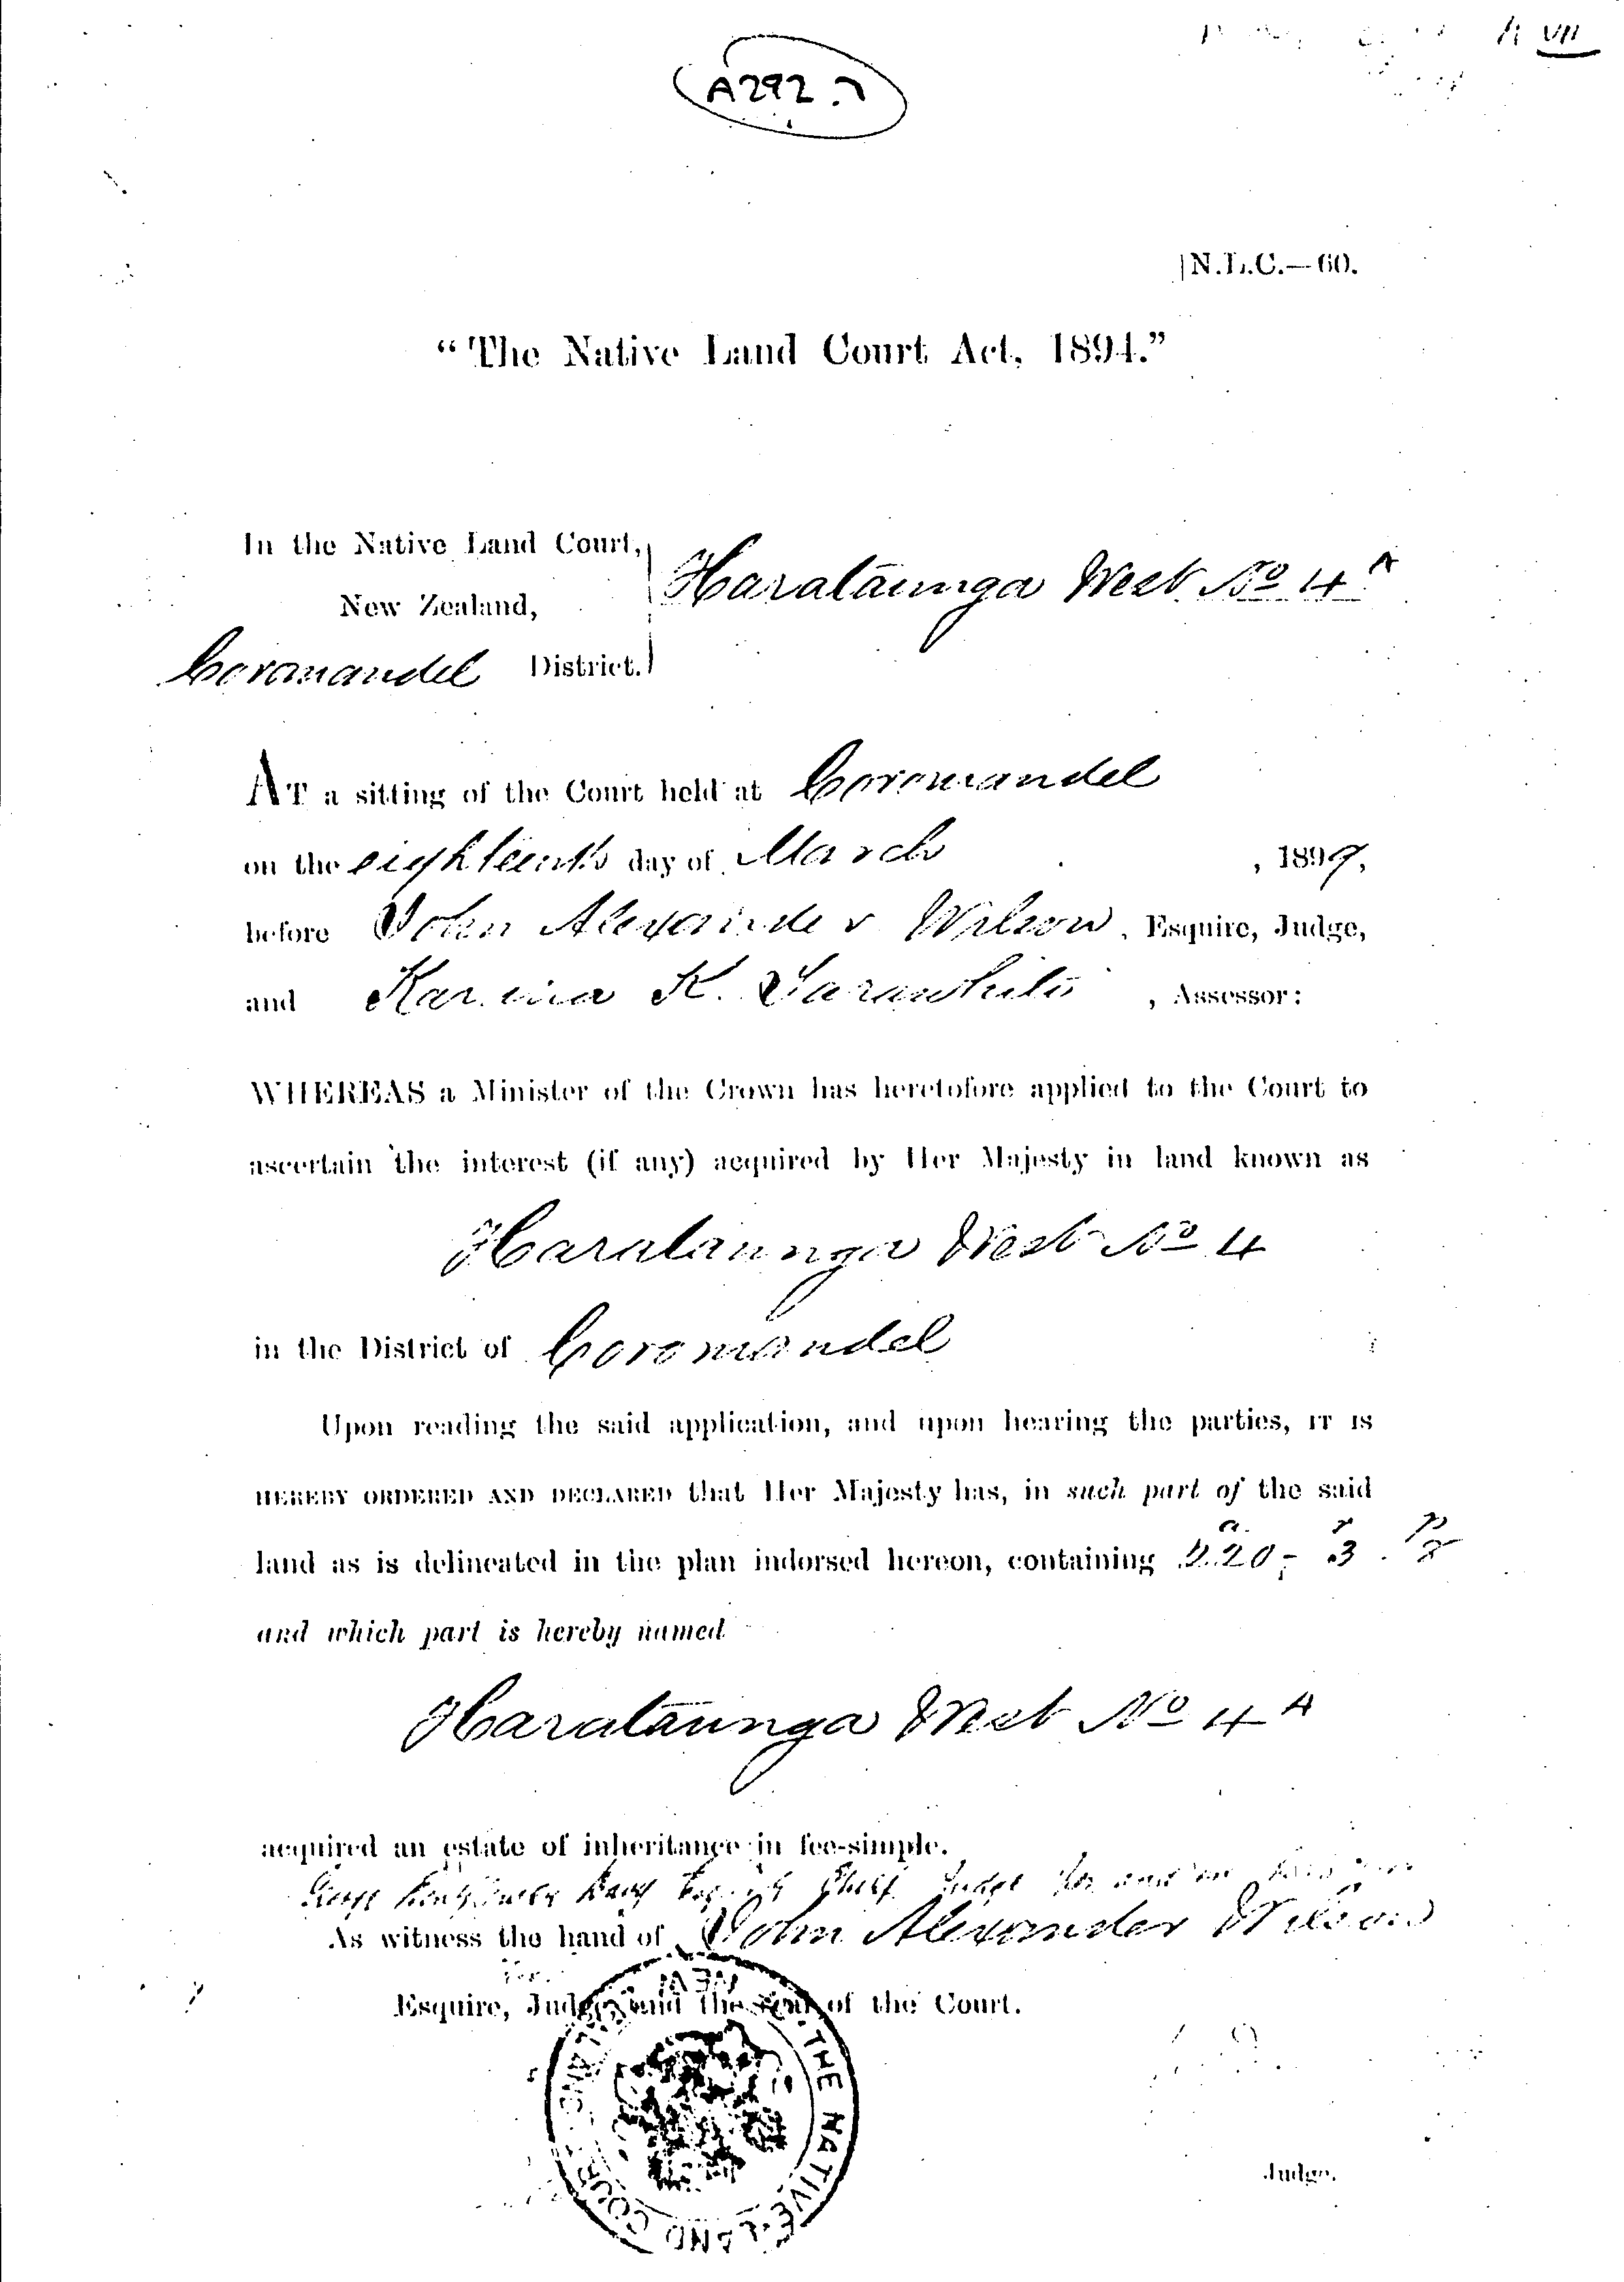 A292.7
VII
N.L.C.—60.
“The Native Land Court Act, 1894.”
In the Native Land Court,
New Zealand,
Harataunga West No 4A
Coromandel District.
AT a sitting of the Court held at Coromandel
on the eighteenth day of March, 1899,
before John Alexander Wilson, Esquire, Judge,
and K. , Assessor:
WHEREAS a Minister of the Crown has heretofore applied to the Court to
ascertain the interest (if any) acquired by Her Majesty in land known as
Harataunga West No 4
in the District of Coromandel
Upon reading the said application, and upon hearing the parties, IT IS
HEREBY ORDERED AND DECLARED that Her Majesty has, in such part of the said
land as is delineated in the plan indorsed hereon, containing a. r p 220 - 3.
and which part is hereby named
Harataunga West No 4A
acquired an estate of inheritance in fee-simple.
Chief Judge for and
As witness the hand of John Alexander Wilson
Esquire, Judge, and the Seal of the Court.
THE NATIVE LAND COURT NEW
Judge.